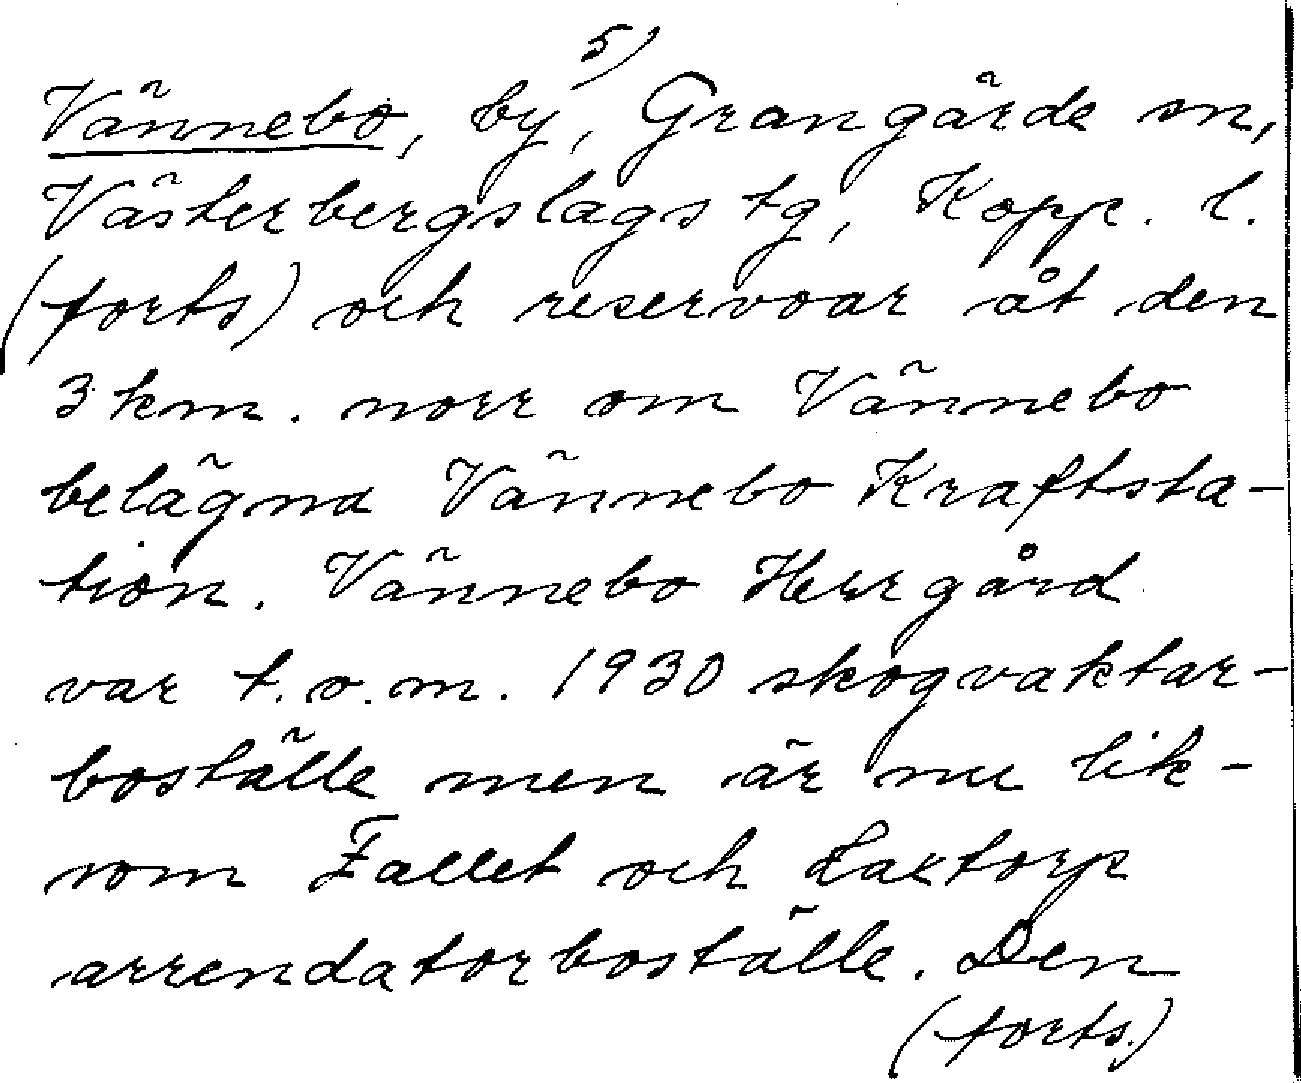 5)
Vännebo, by, Grangärde sn,
Västerbergslags tg, Kopp. l.
(forts) och reservoar åt den
3 km. norr om Vännebo
belägna Vännebo Kraftsta-
tion. Vännebo Herrgård
var t.o.m. 1930 skogvaktar-
boställe men är nu lik-
som Fallet och Laxtorp
arrendatorboställe. Den
(forts.)